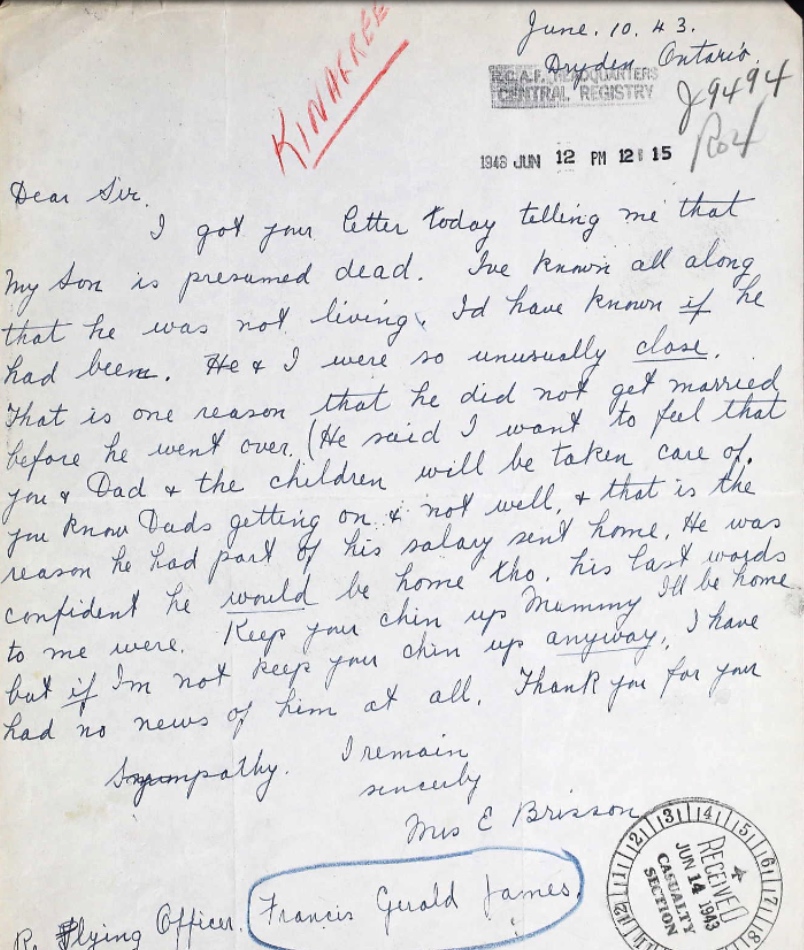 June. 10. 43.
Dryden, Ontario.
R.C.A.F. HEADQUARTERS
CENTRAL REGISTRY
J9494
KINAGREE
1943 JUN 12 PM 12 15
Dear Sir.
I got your letter today telling me that
My Son is presumed dead. Ive known all along
that he was not living. Id have known if he
had been. He & I were so unusually close.
That is one reason that he did not get married
before he went over. (He said I want to feel that
you & Dad & the children will be taken care of.
you know Dads getting on & not well, & that is the
reason he had part of his salary sent home. He was
confident he would be home tho. his last words
to me were. Keep your chin up Mummy Ill be home
but if Im not keep your chin up anyway, I have
had no news of him at all. Thank you for your
Sympathy. I remain
sincerly
Mrs E Brisson
Re. Flying Officer. Francis Gerald James.
RECEIVED
4
JUN 14 1943
CASUALTY
SECTION
12 11 12 13 14 15 16 17 18